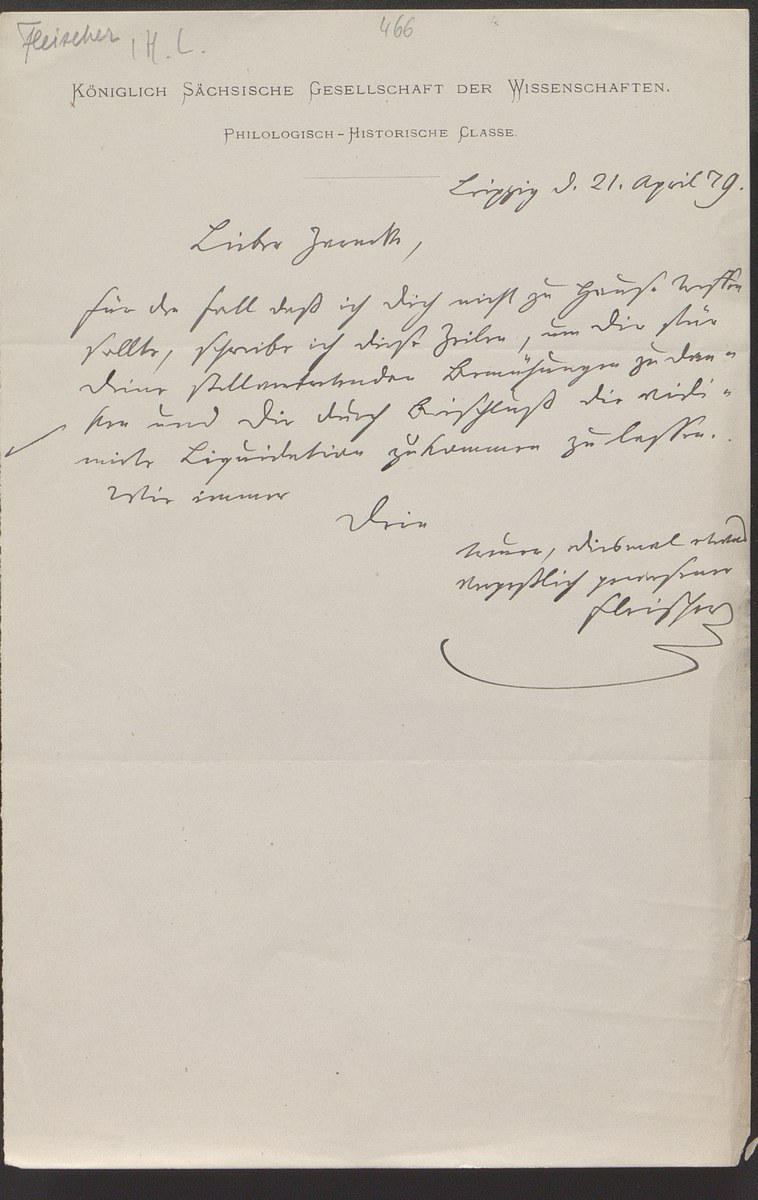 Fleischer, H. L.
466
Königlich Sächsische Gesellschaft der Wissenschaften.
Philologisch-Historische Classe.
Leipzig d. 21. April 79.
Lieber Zarncke,
für den Fall daß ich Dich nicht zu Hause treffen
sollte, schreibe ich diese Zeilen, um Dir für
Deine stellvertretenden Bemühungen zu dan-
ken und Dir durch Beischluß die vidi-
mirte Liquidation zukommen zu lassen.
Wie immer
Dein
treuer, diesmal etwas
vergeßlich gewesener
Fleischer